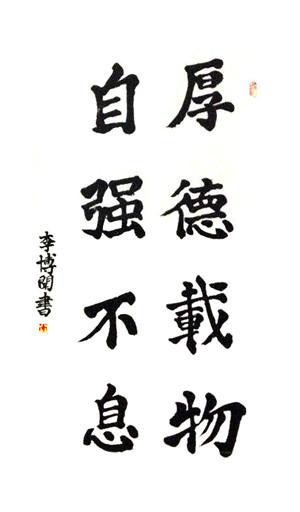 厚德載物
自强不息
李博閎書